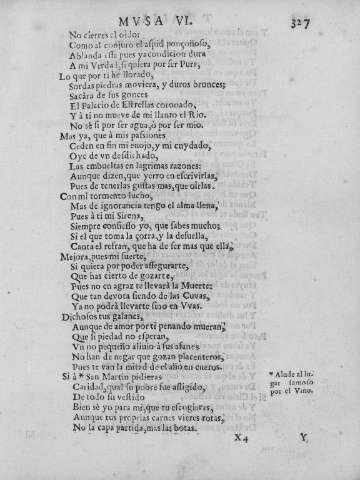 MVSA VI. 327
No cierres el oìdo:
Como al conjuro el aspid ponçoñoso,
Ablanda esta pues ya condicion dura
A mi Verdad, si quiera por ser Pura,
Lo que por ti he llorado,
Sordas piedras moviera, y duros bronces;
Sacàra de sus gonces
El Palacio de Estrellas coronado,
Y à ti no mueve de mi llanto el Rio.
No sè si por ser agua, ò por ser mio.
Mas ya, que à mis passiones
Ceden en fin mi enojo, y mi cuydado,
Oye de vn desdichado,
Las embueltas en lagrimas razones:
Aunque dizen, que yerro en escrivirlas,
Pues de tenerlas gustas mas, que oìrlas.
Con mi tormento lucho,
Mas de ignorancia tengo el alma llena,
Pues à ti mi Sirena,
Siempre confiesso yo, que sabes mucho;
Si el que toma la çorra, y la desuella,
Canta el refran, que ha de ser mas que ella,
Mejora, pues mi suerte,
Si quiera por poder assegurarte,
Que has cierto de gozarte,
Pues no en agraz te llevarà la Muerte:
Que tan devota siendo de las Cuvas,
Ya no podrà llevarte sino en Vvas.
Dichosos tus galanes,
Aunque de amor por ti penando mueran,
Que si piedad no esperan,
Vn no pequeño alivio à sus afanes
No han de negar que gozan placenteros,
Pues te van la mitad de el año en cueros.
Si à * San Martin pidieras
Caridad, qual su pobre fue afligido,
De todo su vestido
Bien sè yo para mi, que tu escogieras,
Aunque tus proprias carnes vieres rotas,
No la capa partida, mas las botas.
* Alude al lugar
famoso
por el Vino.
X4 Y,